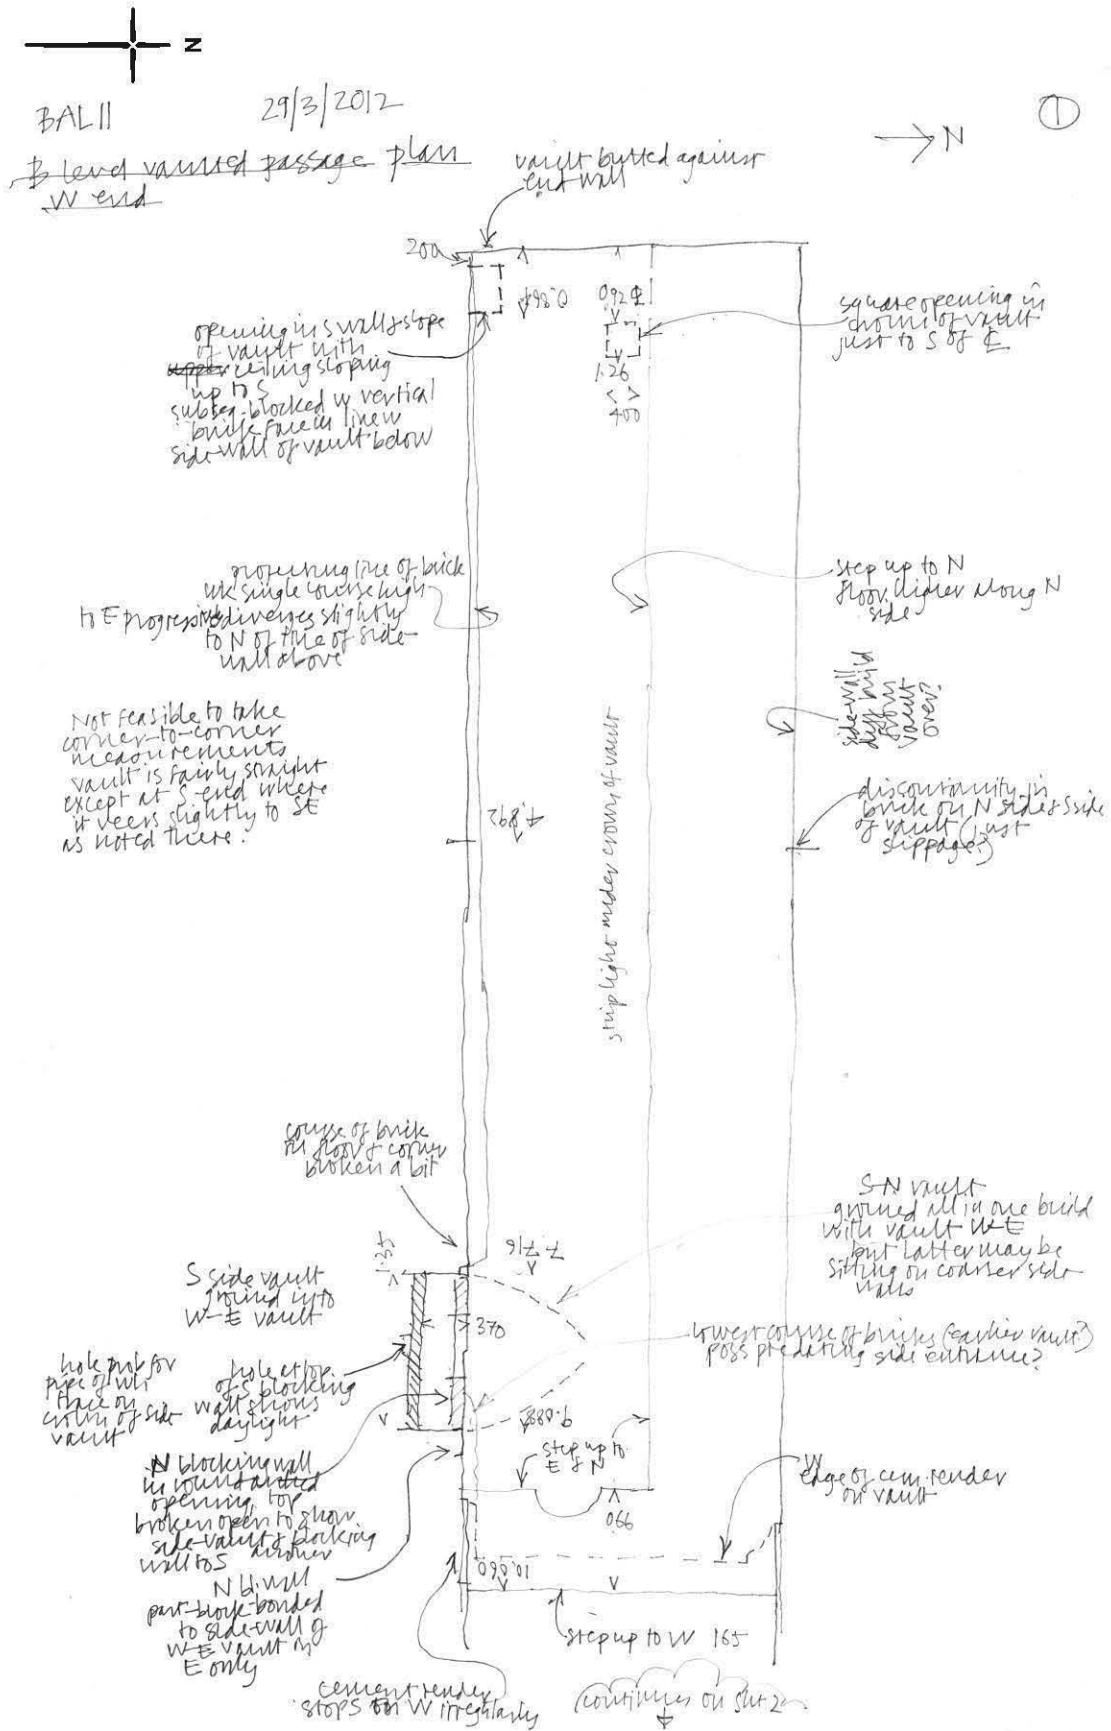 N
BAL11
29/3/2012
1
B level vaulted passage plan
W end
→ N
vault butted against
end wall
200
0.864
0.760
1.26
400
opening in S wall & slope
of vault with
upper ceiling sloping
up to S
subseq. blocked w vertical
brick face in line w
side wall of vault below
square opening in
crown of vault
just to S of ℄
projecting line of brick
wk single course high
to E progressively diverges slightly
to N of line of side
wall above
step up to N
floor higher along N
side
side-wall
diff build
from
vault
over?
Not feasible to take
corner-to-corner
measurements
vault is fairly straight
except at S end where
it veers slightly to SE
as noted there.
4.892
striplight under crown of vault
discontinuity in
brick on N side & S side
of vault (just
slippage?)
course of brick
in floor & corner
broken a bit
1.35
7.716
S-N vault
groined all in one build
with vault W-E
but latter may be
sitting on coarser side
walls
S side vault
groined into
W-E vault
370
lowest course of bricks (earlier vault?)
poss predating side entrance?
hole prob for
pipe of wh
trace on
crown of side
vault
hole at top
of S blocking
wall shows
daylight
9.088
step up to
E & N
N blocking wall
in round arched
opening top
broken open to show
side-vault & blocking
wall to S
990
W
edge of cem. render
on vault
10.060
N bl. wall
part-block-bonded
to side-wall of
W-E vault in
E only
step up to W 165
cement render
stops to W irregularly
(continues on sht 2